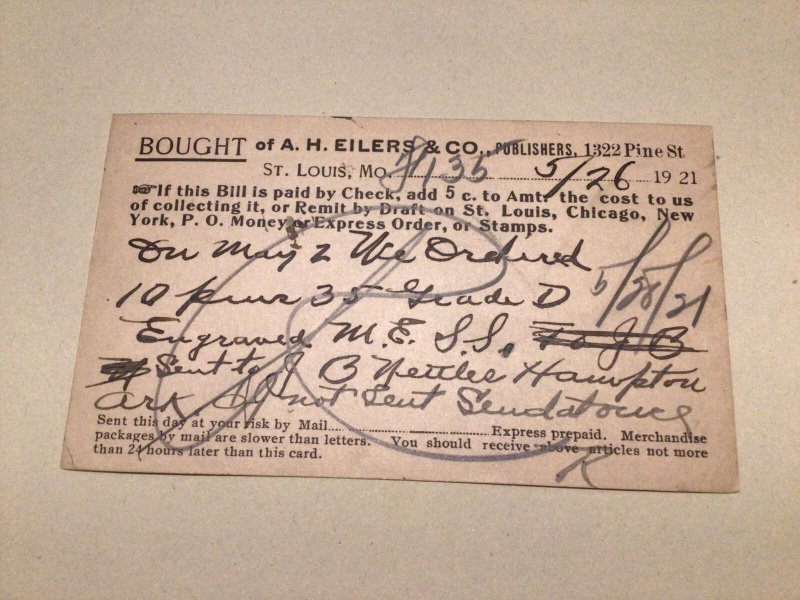 BOUGHT of A. H. EILERS & CO., PUBLISHERS, 1322 Pine St
ST. LOUIS, MO. 5/26 1921
☞If this Bill is paid by Check, add 5 c. to Amt. the cost to us
of collecting it, or Remit by Draft on St. Louis, Chicago, New
York, P. O. Money or Express Order, or Stamps.
On May 2 We Ordered
10 35 Grade D
5/28/21
Engraved M. E. S. S. To J B
Sent to J B Nettles Hampton
Ark. If not Sent Send at once
Sent this day at your risk by Mail Express prepaid. Merchandise
packages by mail are slower than letters. You should receive above articles not more
than 24 hours later than this card.
R